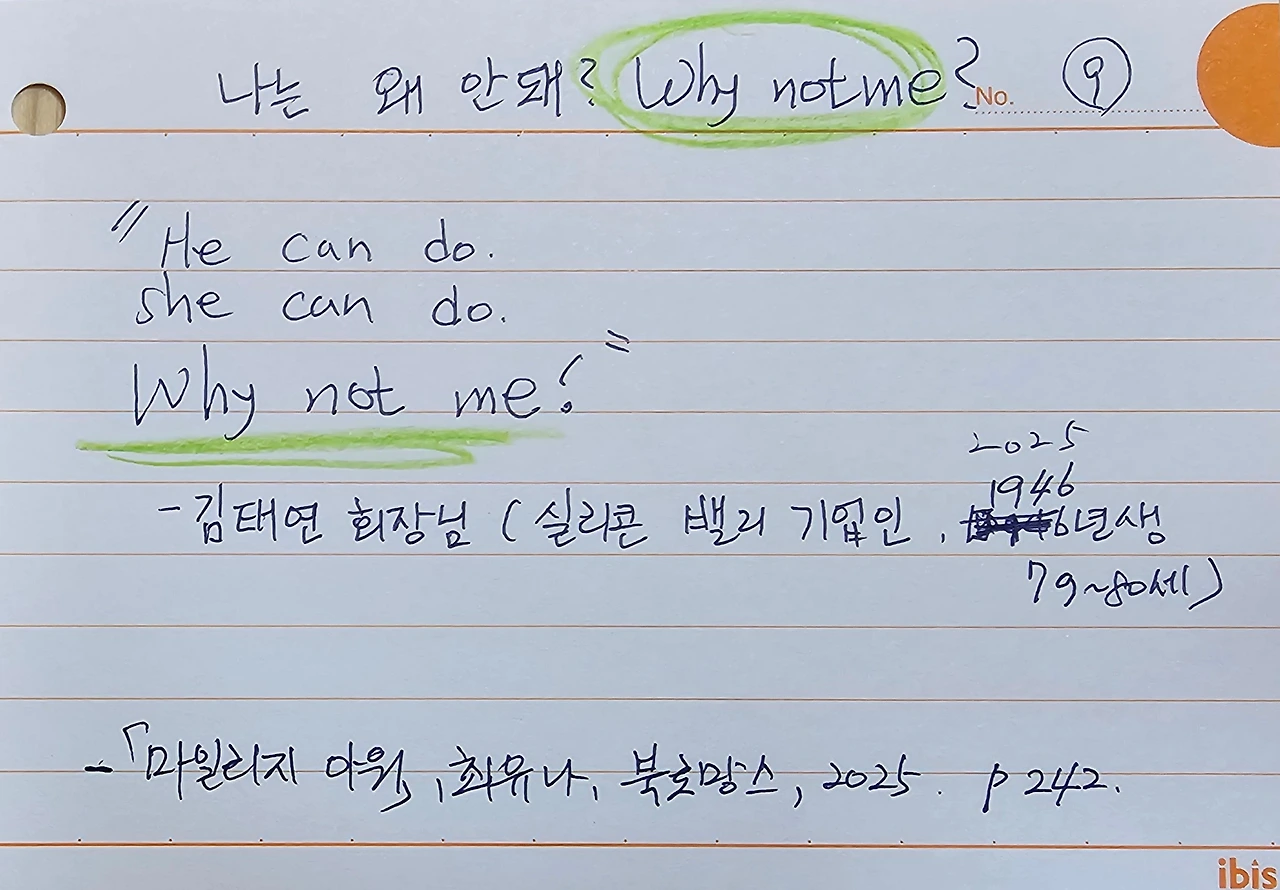 나는 왜 안돼? Why not me? No. ⑨
"He can do.
she can do.
Why not me!"
2025
1946
-김태연 회장님 (실리콘 밸리 기업인, 6년생
79~80세)
-「마일리지 아워」, 최유나, 북로망스, 2025. p 242.
ibis